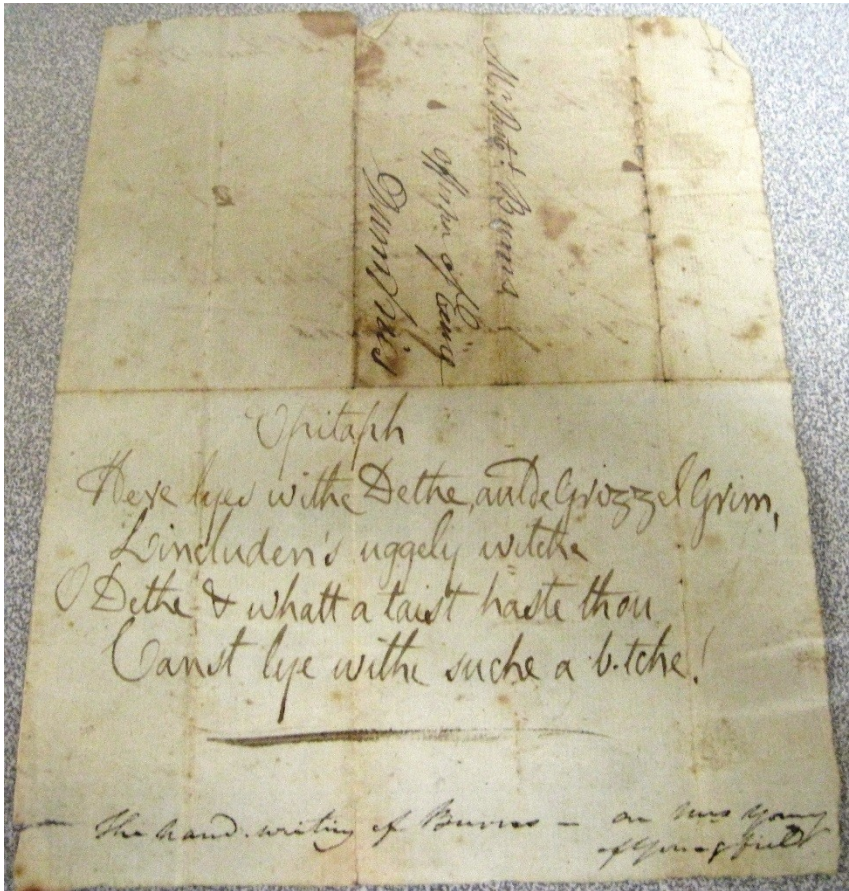 Mr. Robt. Burns
officer of Excise
Dumfries
Epitaph
Here lyes withe Dethe, aulde Grizzel Grim,
Lincluden's uggely witche
O Dethe & whatt a taist haste thou
Canst lye withe suche a b.tche!
The hand-writing of Burns – on Mrs Young
of Youngfield